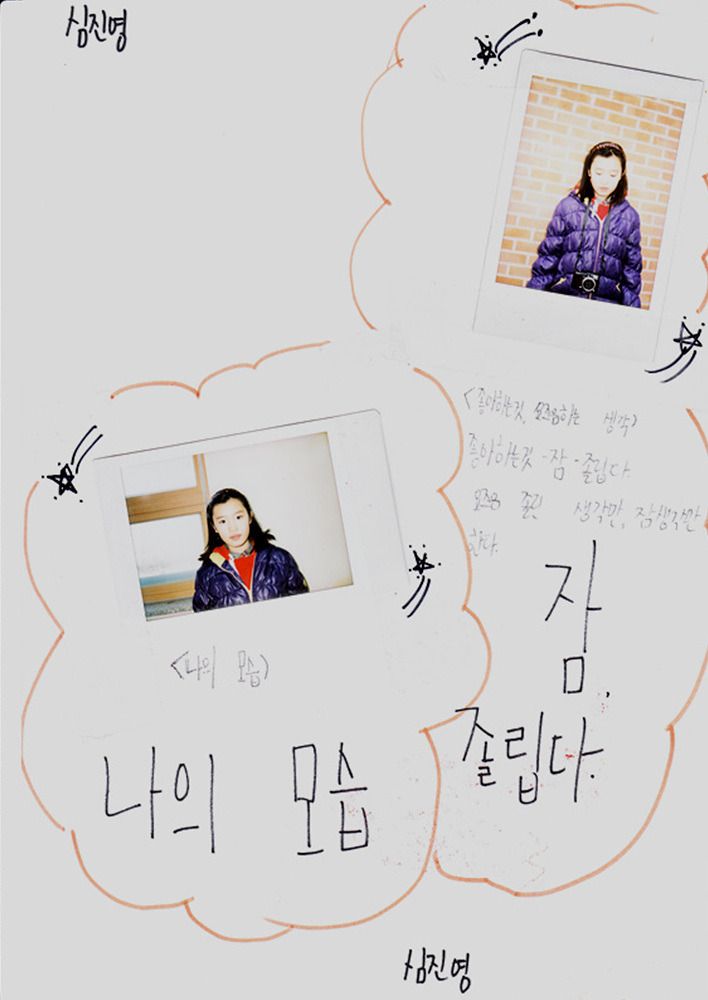 심진영
<좋아하는것, 요즈음하는 생각>
좋아하는것 - 잠 - 졸립다.
요즈음 졸린 생각만, 잠생각만
한다.
잠.
졸립다.
<나의 모습>
나의 모습
심진영